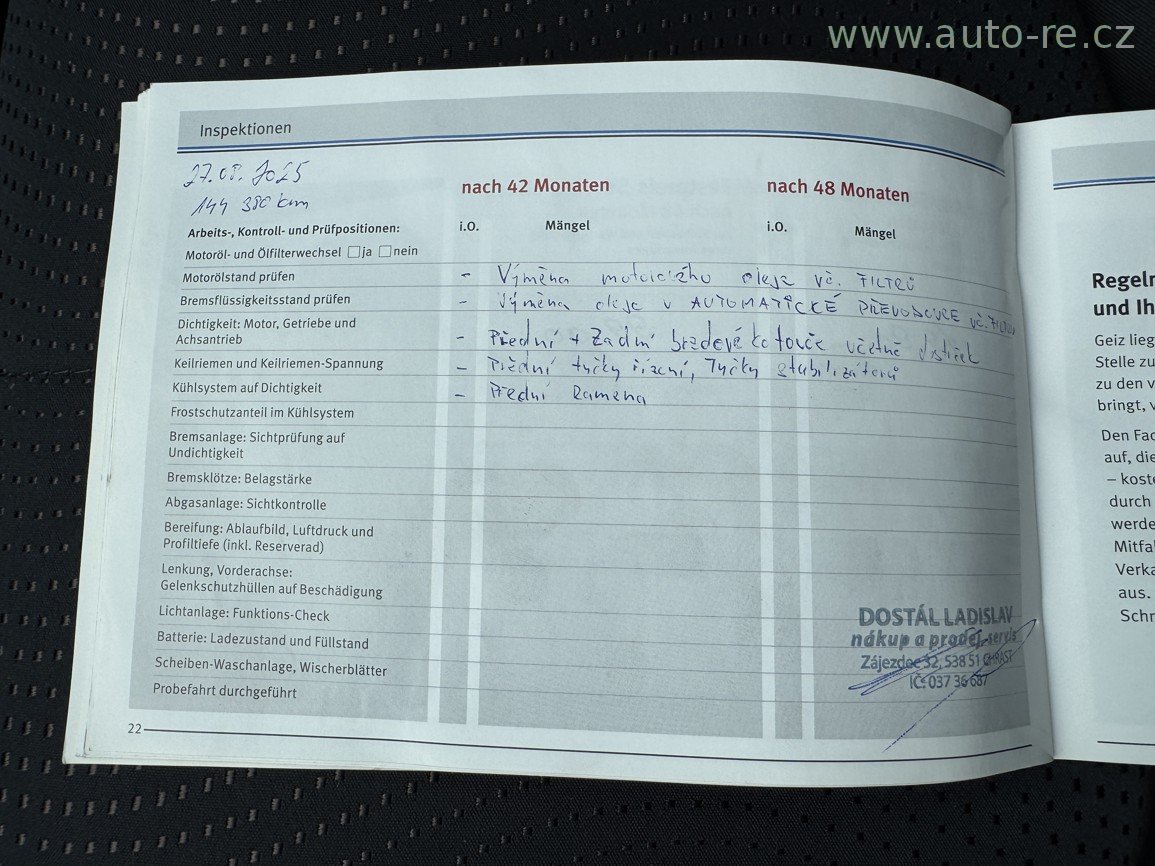 www.auto-re.cz
Inspektionen
27.08.2025
144 380 km
nach 42 Monaten
nach 48 Monaten
Arbeits-, Kontroll- und Prüfpositionen:
i.O.
Mängel
i.O.
Mängel
Motoröl- und Ölfilterwechsel ja nein
Motorölstand prüfen
- Výměna motorického oleje vč. FILTRŮ
Bremsflüssigkeitsstand prüfen
- Výměna oleje v AUTOMATICKÉ PŘEVODOVCE vč. FILTRU
Dichtigkeit: Motor, Getriebe und
Achsantrieb
- Přední + Zadní brzdové kotouče včetně destiček
Keilriemen und Keilriemen-Spannung
- Přední tyčky řízení, Tyčky stabilizátorů
Kühlsystem auf Dichtigkeit
- Přední Ramena
Frostschutzanteil im Kühlsystem
Bremsanlage: Sichtprüfung auf
Undichtigkeit
Bremsklötze: Belagstärke
Abgasanlage: Sichtkontrolle
Bereifung: Ablaufbild, Luftdruck und
Profiltiefe (inkl. Reserverad)
Lenkung, Vorderachse:
Gelenkschutzhüllen auf Beschädigung
Lichtanlage: Funktions-Check
Batterie: Ladezustand und Füllstand
Scheiben-Waschanlage, Wischerblätter
Probefahrt durchgeführt
DOSTÁL LADISLAV
nákup a prodej, servis
Zájezdec 32, 538 51 CHRAST
IČ: 037 36 687
22
Regeln
und Ih
Geiz lieg
Stelle zu
zu den v
bringt, v
Den Fac
auf, die
– koste
durch
werde
Mitfa
Verka
aus.
Schr